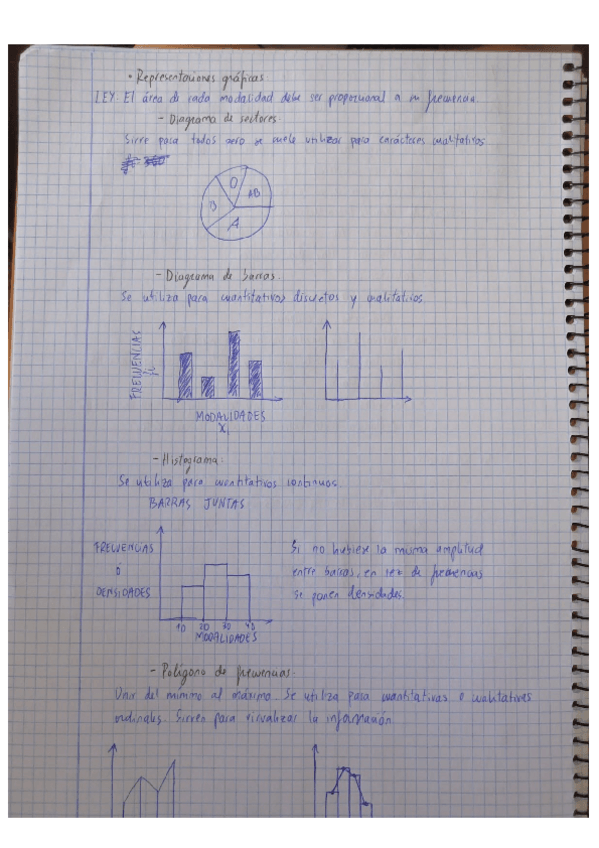 • Representaciones gráficas
LEY El área de cada modalidad debe ser proporcional a su frecuencia.
- Diagrama de sectores.
Sirve para todos pero se suele utilizar para carácteres cualitativos
O
AB
B
A
- Diagrama de barras.
Se utiliza para cuantitativos discretos y cualitativos
FRECUENCIAS
fi
MODALIDADES
Xi
- Histograma.
Se utiliza para cuantitativos continuos.
BARRAS JUNTAS
FRECUENCIAS
ó
DENSIDADES
10 20 30 40
MODALIDADES
Si no hubiese la misma amplitud
entre barras, en vez de frecuencias
se ponen densidades
- Polígono de frecuencias.
Unir del mínimo al máximo. Se utiliza para cuantitativas o cualitativas
ordinales. Sirven para visualizar la información.